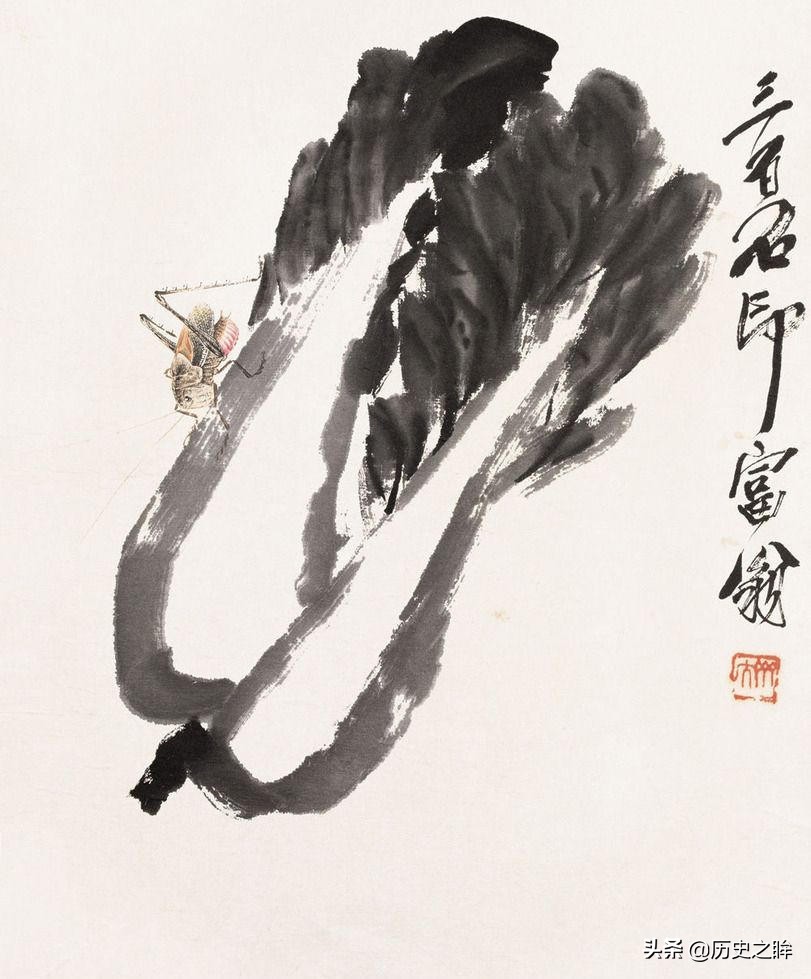 三百石印富翁
头杀 @历史之眸